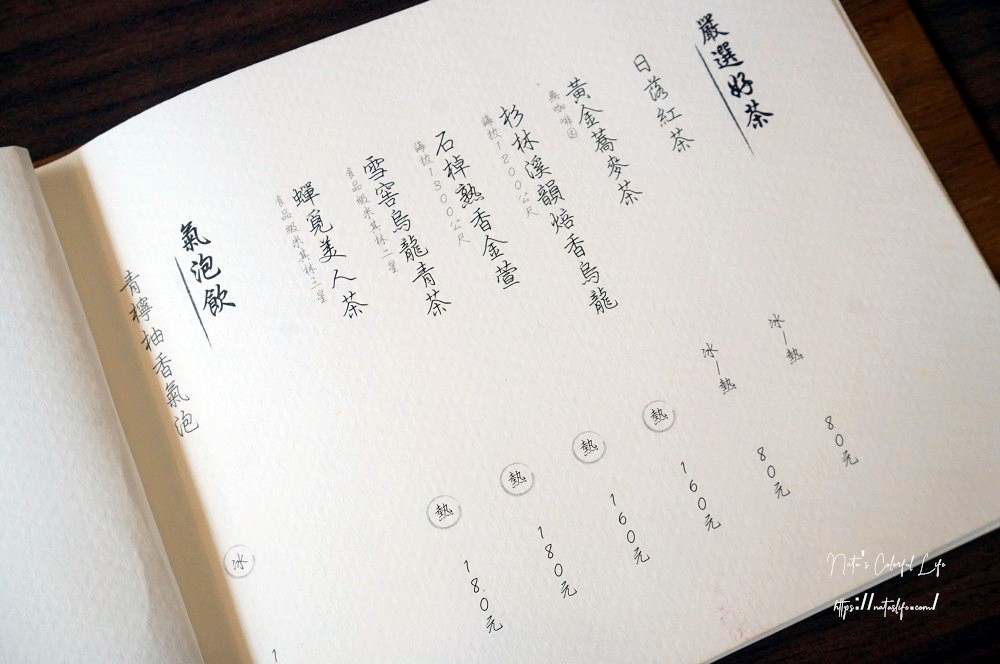 嚴選好茶
日落紅茶
冰—熱
80元
黃金蕎麥茶
無咖啡因
冰—熱
80元
杉林溪韻焙香烏龍
海拔1200公尺
熱
160元
石棹熟香金萱
海拔1300公尺
熱
160元
雪窖烏龍青茶
食品級米其林二星
熱
180元
蟬覓美人茶
食品級米其林三星
熱
180元
氣泡飲
青檸柚香氣泡
冰
1
Nata's Colorful Life
https://nataslife.com/